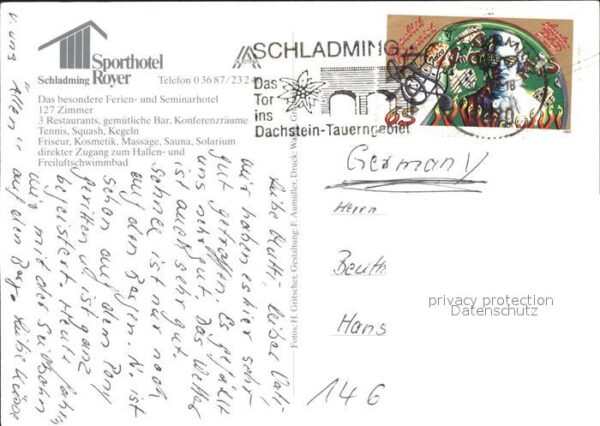 Sporthotel
Royer
Schladming
Telefon 0 36 87/23 2
Das besondere Ferien- und Seminarhotel
127 Zimmer
3 Restaurants, gemütliche Bar, Konferenzräume
Tennis, Squash, Kegeln
Friseur, Kosmetik, Massage, Sauna, Solarium
direkter Zugang zum Hallen- und
Freiluftschwimmbad
SCHLADMING
Das
Tor
ins
Dachstein-Tauerngebiet
65
18
Germany
Herrn
Beuth
Hans
146
privacy protection
Datenschutz
Fotos: H. Gritscher, Gestaltung: F. Aumüller, Druck:
Liebe Mutti, lieber Vati,
wir haben es hier sehr
gut getroffen. Es gefällt
uns sehr gut. Das Wetter
ist auch sehr gut,
Schnee ist nur noch
auf den Bergen. N. ist
schon auf dem Pony
geritten u. ist ganz
begeistert. Heute
wir mit der Seilbahn
auf den Berg. Liebe Grüsse
v. uns Allen